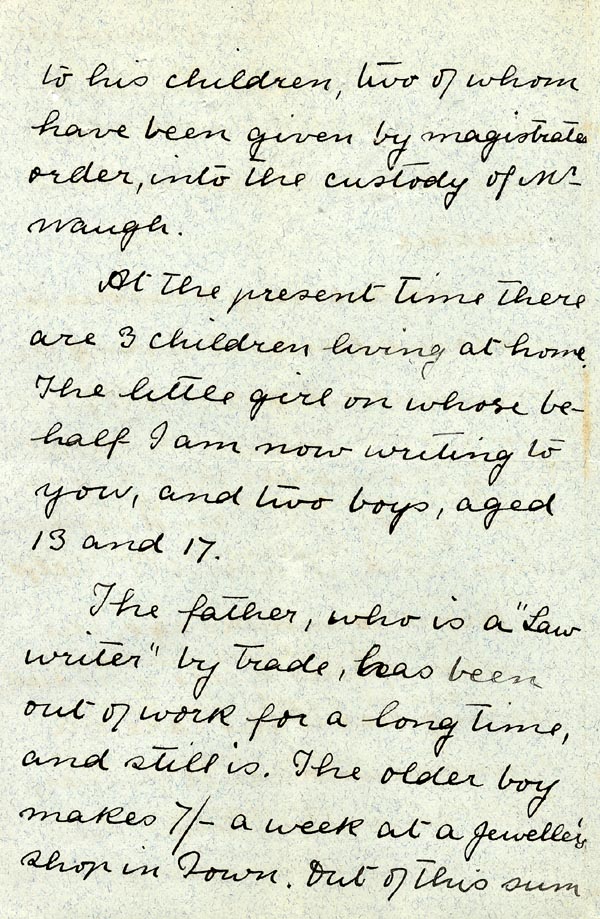 to his children, two of whom
have been given by magistrates
order, into the custody of Mr
Waugh.
At the present time there
are 3 children living at home.
The little girl on whose be-
half I am now writing to
you, and two boys, aged
13 and 17.
The father, who is a "Law
writer" by trade, has been
out of work for a long time,
and still is. The older boy
makes 7/- a week at a jeweller's
shop in Town. Out of this sum